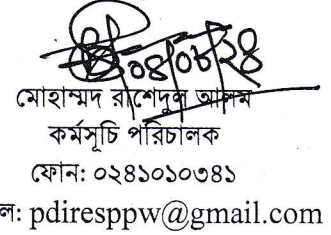 ০৪/০৮/২৪
মোহাম্মদ রাশেদুল আলম
কর্মসূচি পরিচালক
ফোন: ০২৪১০১০৩৪১
ল: pdiresppw@gmail.com